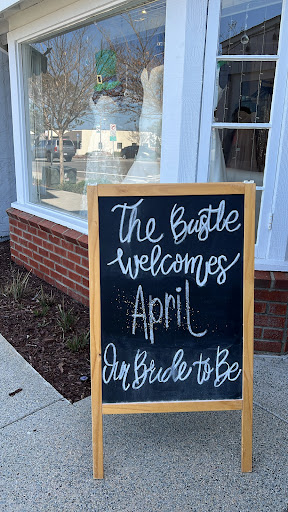 The Bustle
welcomes
April
Our Bride to Be